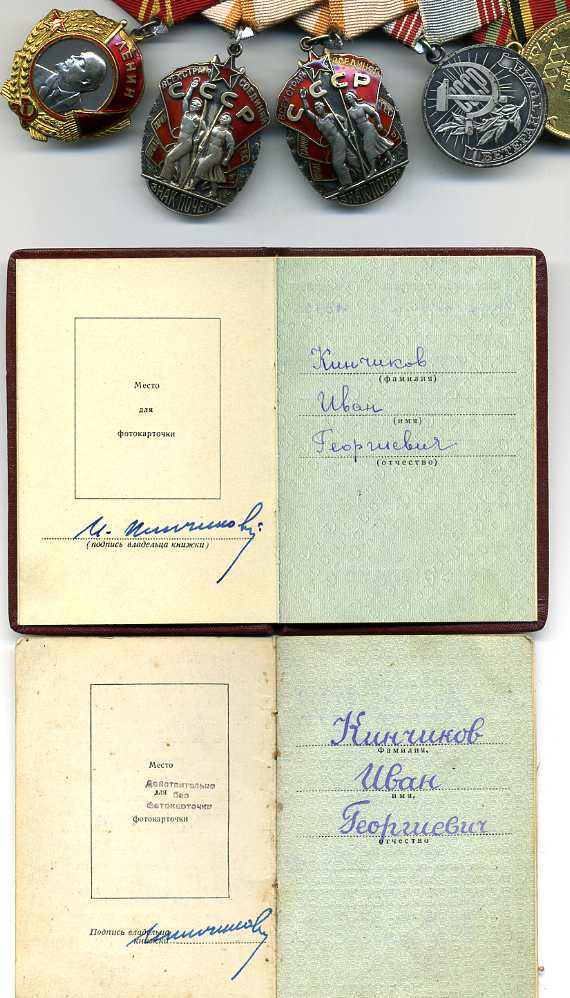 ЛЕНИН
СССР
ЗНАК ПОЧЕТА
СССР
ЗНАК ПОЧЕТА
ВЕТЕРАН
XXX
Место
для
фотокарточки
И. Кинчиков
(подпись владельца книжки)
Кинчиков
(фамилия)
Иван
(имя)
Георгиевич
(отчество)
Место
для
фотокарточки
Действительно
без
фотокарточки
Подпись владельца
книжки
Кинчиков
Кинчиков
Фамилия,
Иван
имя,
Георгиевич
отчество